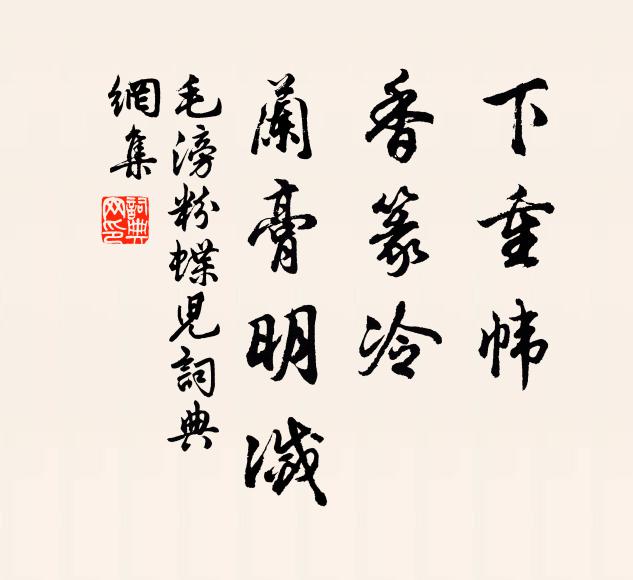 下重幃
香篆冷
蘭膏明滅
毛滂粉蝶兒詞典
網集
詞典網印